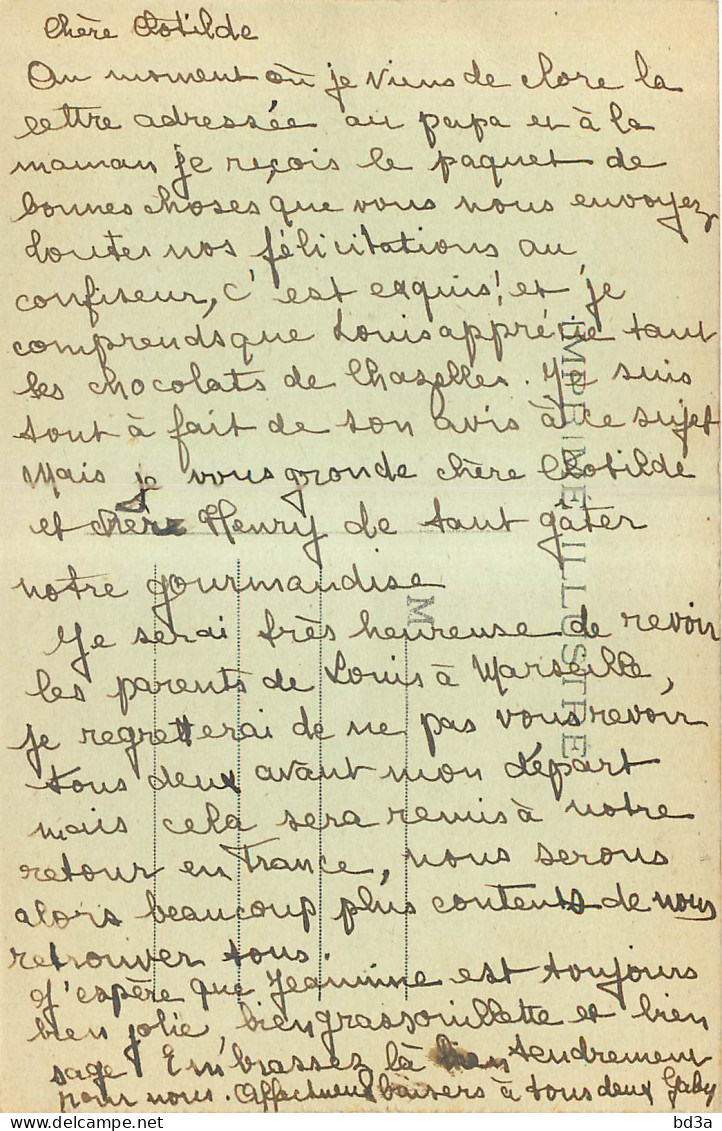 Chère Clotilde
Au moment où je viens de clore la
lettre adressée au papa et à la
maman je reçois le paquet de
bonnes choses que vous nous envoyez
toutes nos félicitations au
confiseur, c'est exquis! et je
comprends que Louis apprécie tant
les chocolats de Chazelles. Je suis
tout à fait de son avis à ce sujet
Mais je vous gronde chère Clotilde
et chère Henry de tant gâter
notre gourmandise
Je serai très heureuse de revoir
les parents de Louis à Marseille,
je regretterai de ne pas vous revoir
tous deux avant mon départ
mais cela sera remis à notre
retour en France, nous serons
alors beaucoup plus contents de nous
retrouver tous.
J'espère que Jeannine est toujours
bien jolie, bien grassouillette et bien
sage Embrassez là bien tendrement
pour nous. Affectueux baisers à tous deux Gaby
IMPRIMÉ ILLUSTRÉ
M
bd3a